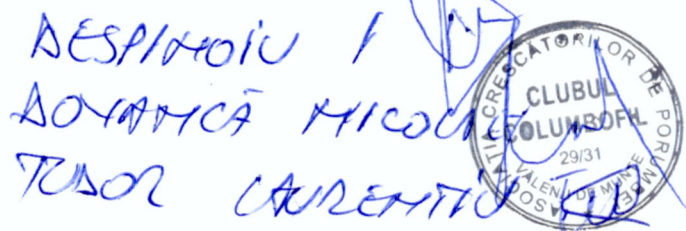 DESPINOIU I
DOVANCĂ NICOLAE
TUDOR LAURENTIU
ASOCIAȚIA CRESCĂTORILOR DE PORUMBEI
CLUBUL
COLUMBOFIL
29/31
VALENII DE MUNTE